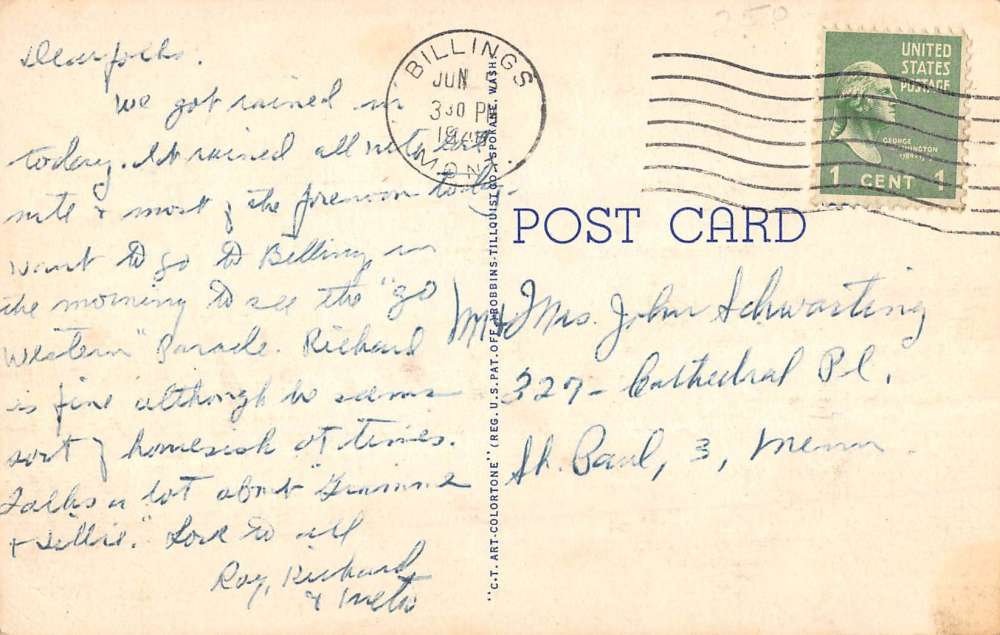 Dear folks.
We got rained in
today. It rained all nite last
nite & most of the forenoon today.
Want to go to Billings in
the morning to see the "Go
Western" Parade. Richard
is fine although he seems
sort of homesick at times.
Talks a lot about "Gramma
& Nellie." Love to all
Roy, Richard
& Ineta
BILLINGS
JUN
3 30 PM
MONT.
UNITED
STATES
POSTAGE
GEORGE
WASHINGTON
1 CENT 1
POST CARD
Mr & Mrs. John Schwarting
327- Cathedral Pl.
St. Paul, 3, Minn.
"C.T. ART-COLORTONE" (REG. U.S. PAT. OFF.) ROBBINS-TILLQUIST CO., SPOKANE, WASH.
250